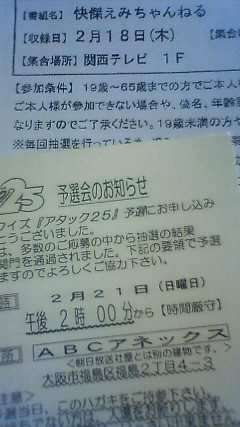 【番組名】 快傑えみちゃんねる
【収録日】 2月18日(木) 【集合
【集合場所】 関西テレビ 1F
【参加条件】 19歳～65歳までの方でご本
ご本人様が参加できない場合や、偽名、年齢
なりますのでご了承ください。19歳未満の方や
※毎回抽選を行っている
25
予選会のお知らせ
イズ『アタック25』予選にお申し込み
とうございました。
は、多数のご応募の中から抽選の結果
関門を通過されました。下記の要領で予選
ますのでよろしくご協力下さい。
2月21日(日曜日)
午後 2時 00分から【時間厳守】
所 ABCアネックス
<朝日放送社屋とは別の建物です。>
大阪市福島区福島2丁目4-3
意> このハガキをご持参下さい。